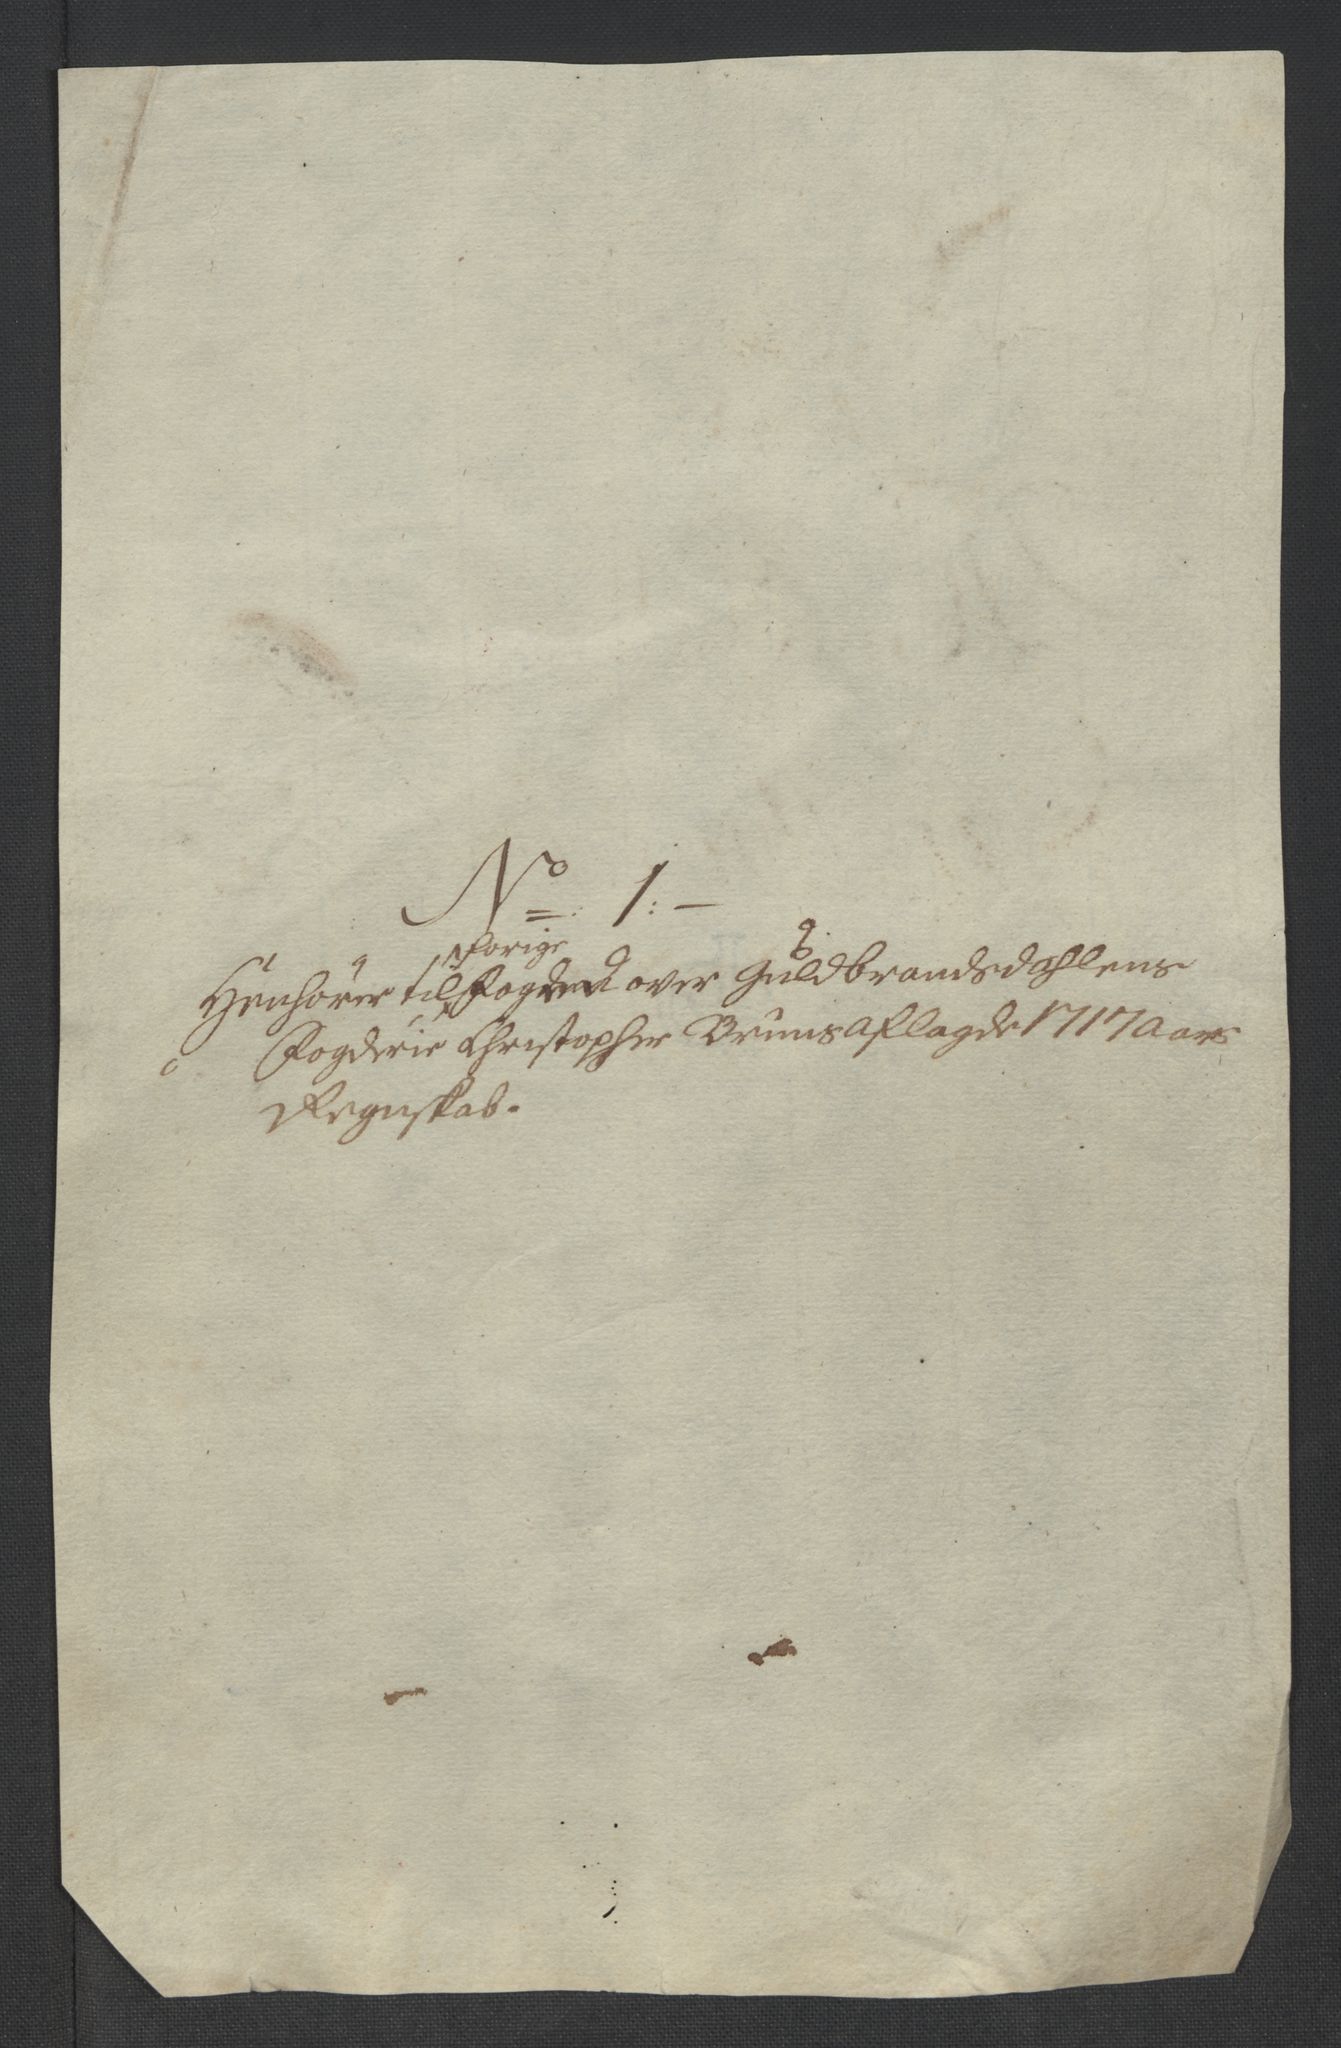 No 1:
forige
Henhører til Fogden over Guldbrandsdahlens
Fogderie Christopher Bruns aflagde 1717 Aars
Regnskab.